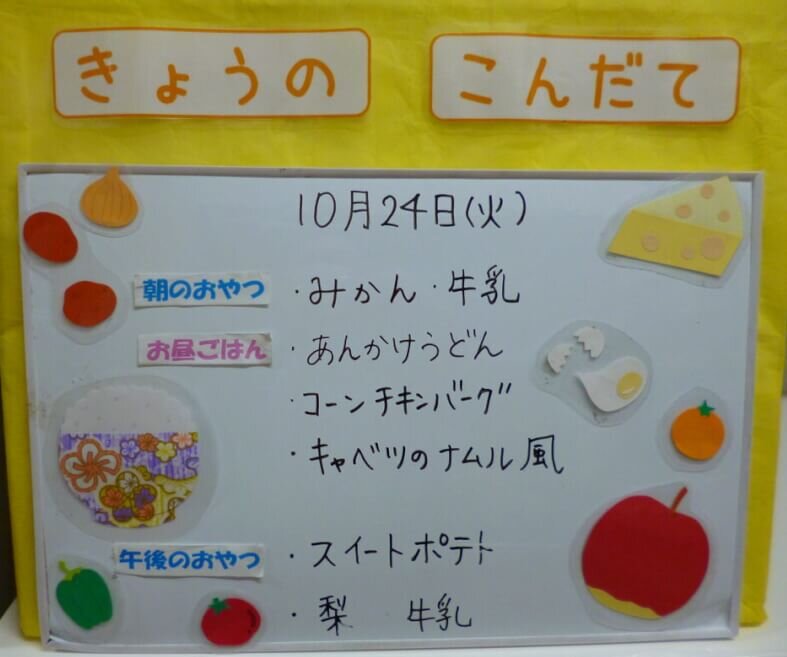 きょうの こんだて
10月24日(火)
朝のおやつ ・みかん・牛乳
お昼ごはん ・あんかけうどん
・コーンチキンバーグ
・キャベツのナムル風
午後のおやつ ・スイートポテト
・梨 牛乳